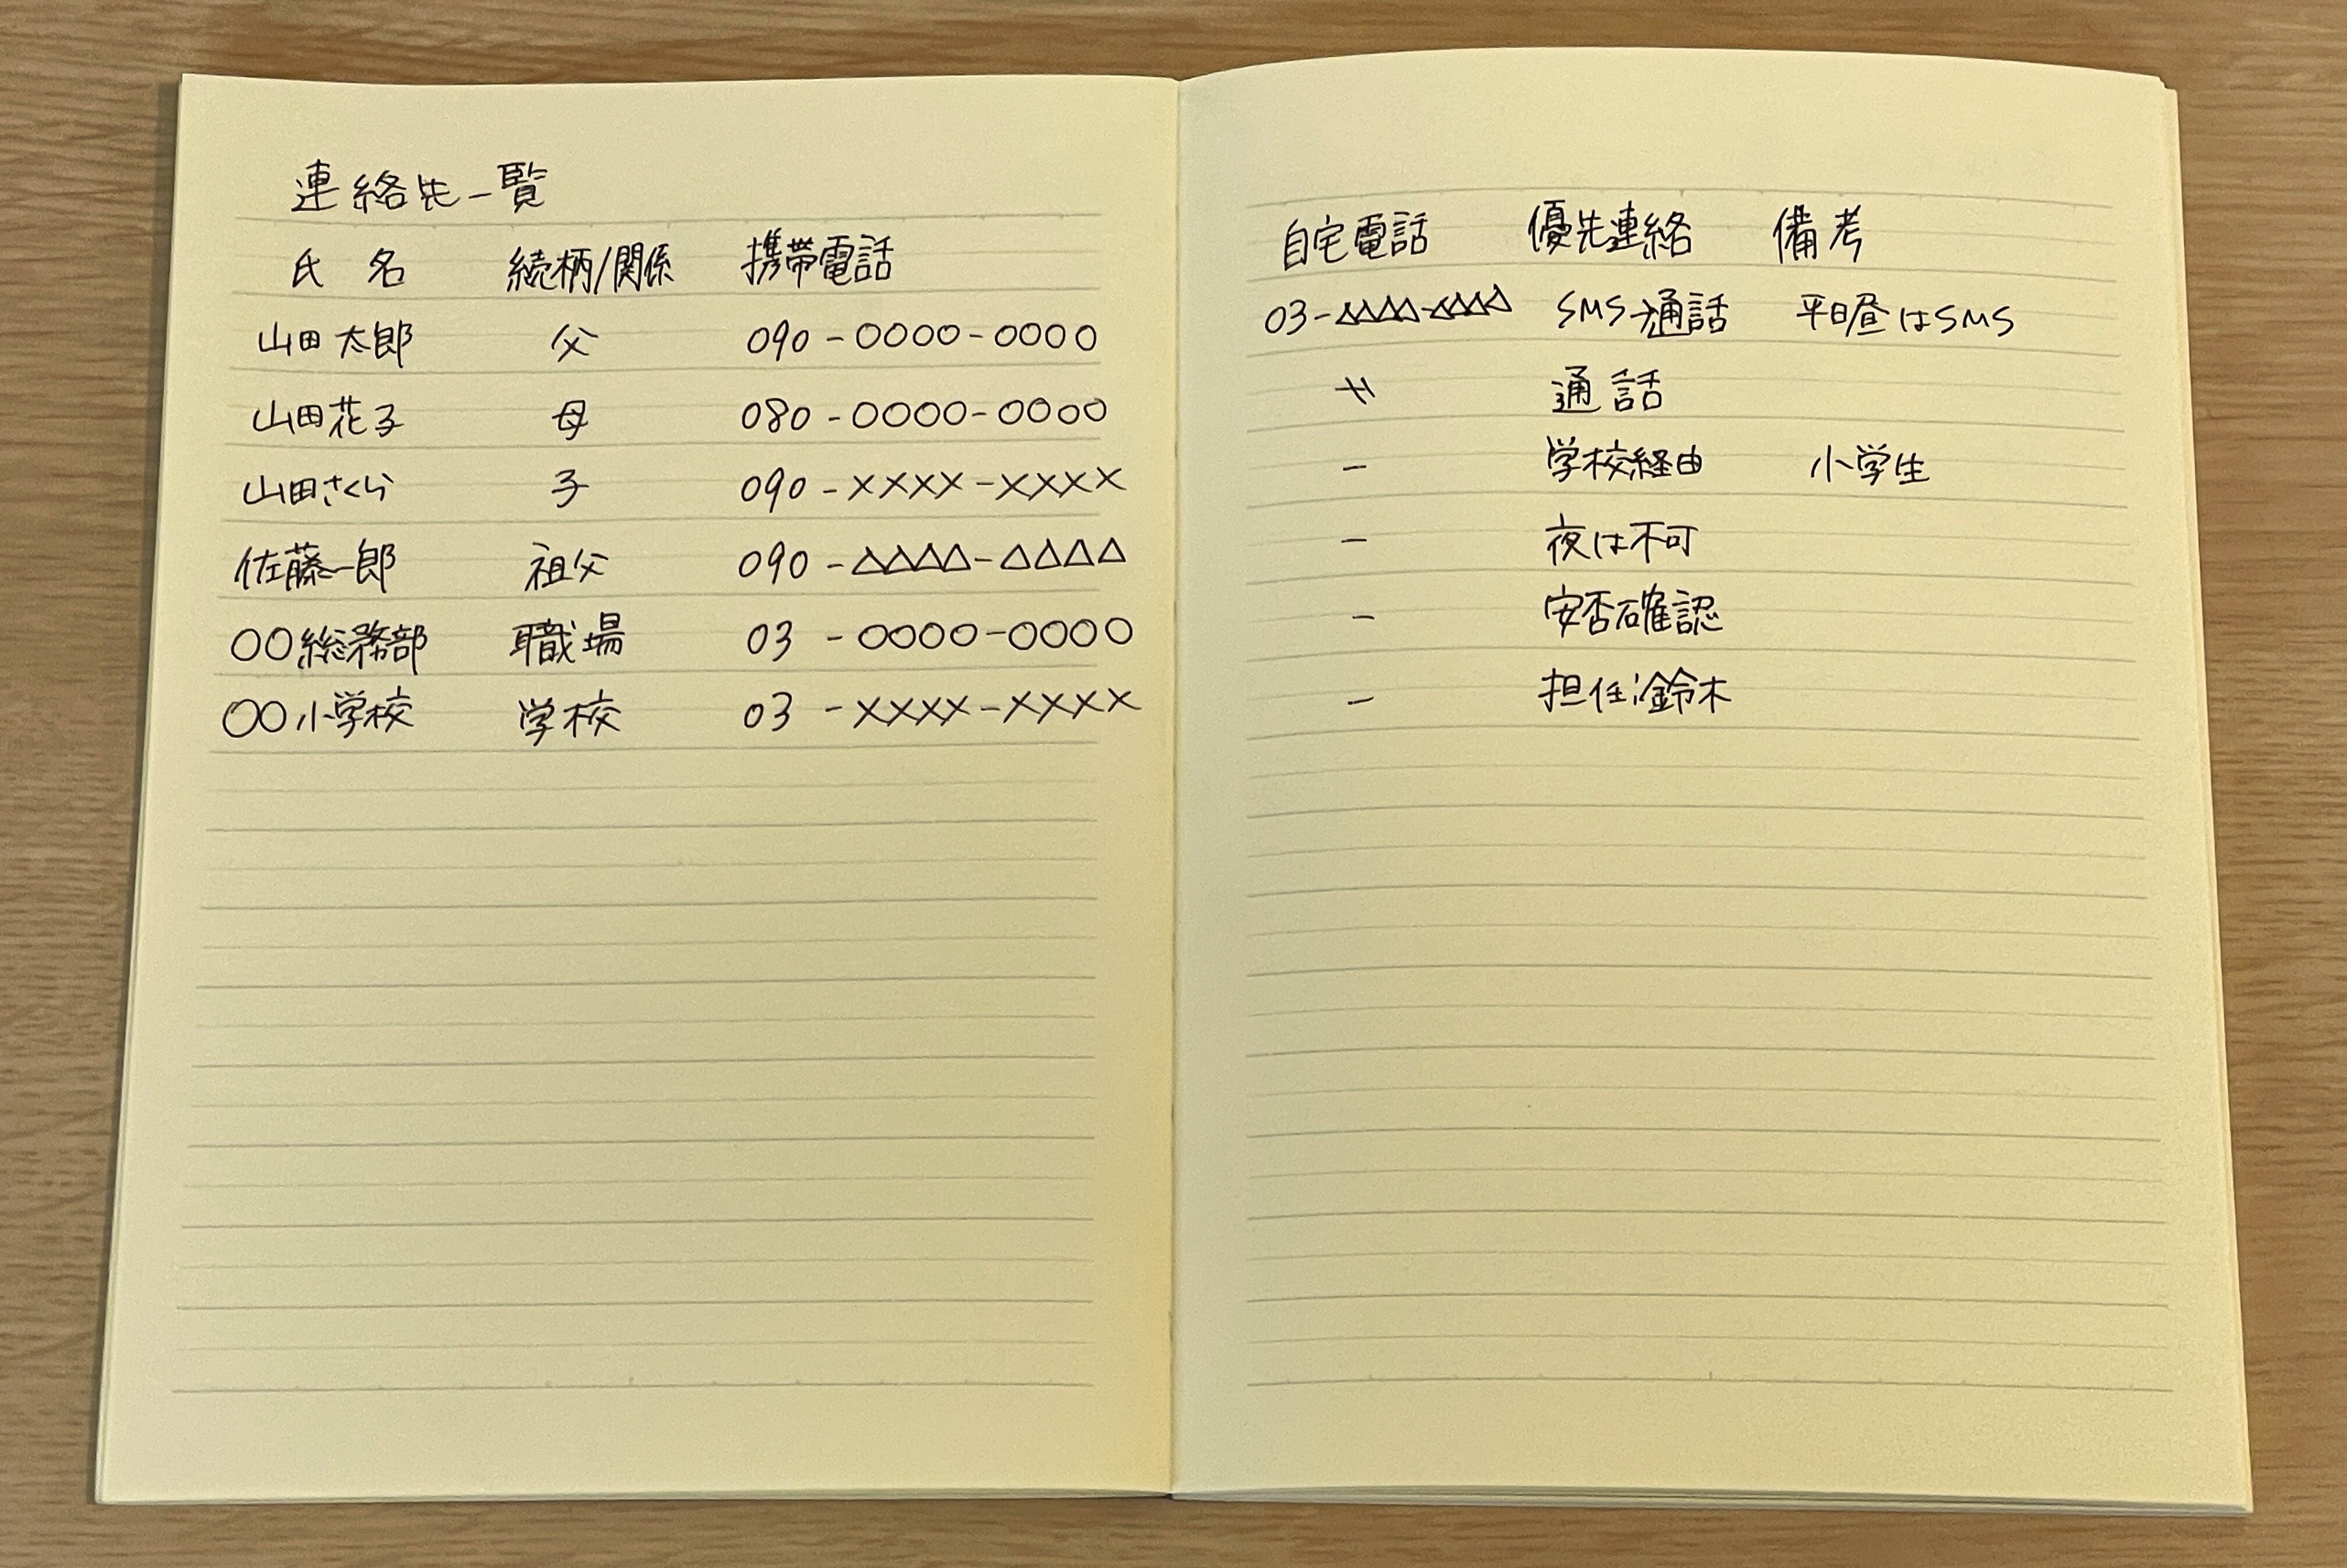 連絡先一覧
氏名 続柄/関係 携帯電話
山田太郎 父 090-0000-0000
山田花子 母 080-0000-0000
山田さくら 子 090-××××-××××
佐藤一郎 祖父 090-△△△△-△△△△
〇〇総務部 職場 03-0000-0000
〇〇小学校 学校 03-××××-××××
自宅電話 優先連絡 備考
03-△△△△-△△△△ SMS→通話 平日昼はSMS
〃 通話
- 学校経由 小学生
- 夜は不可
- 安否確認
- 担任:鈴木